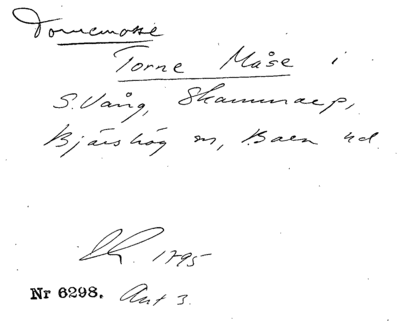 Tornemosse
Torne Måse i
S. Vång, Skammarp,
Bjärshög m, Baen hd
Lh. 1795
Nr 6298. Ant 3.